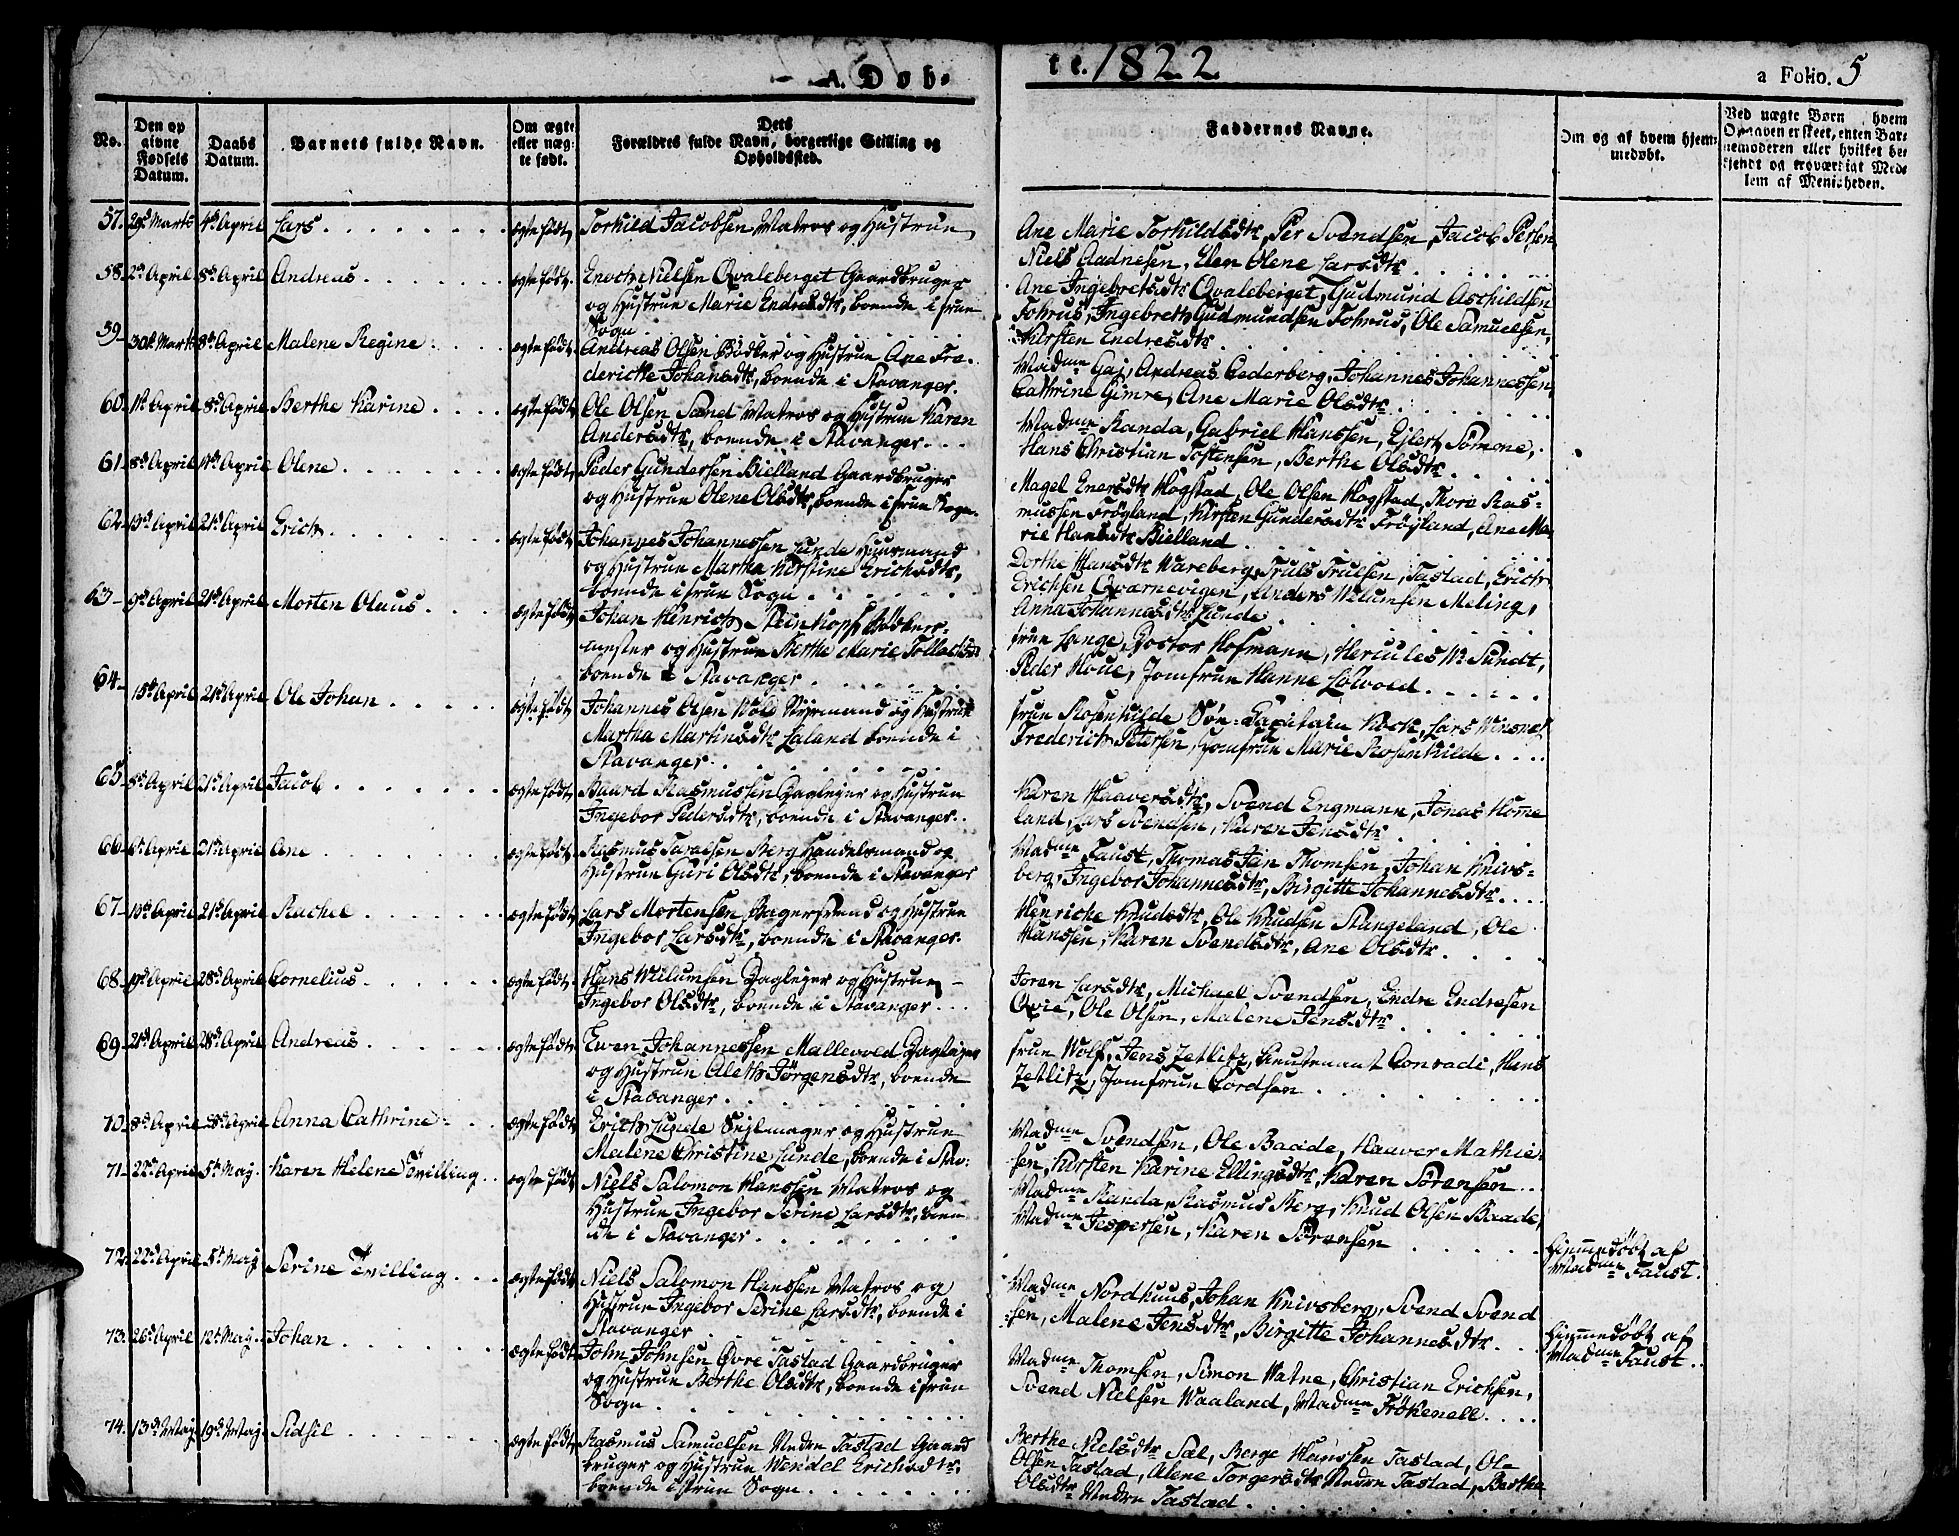 A. Døb-
te. 1822
a Folio. 5
No.
Den op
givne
Fødsels
Datum.
Daabs
Datum.
Barnets fulde Navn.
Om ægte
eller uæg-
te født.
Dets
Forældres fulde Navn, borgerlige Stilling og
Opholdssted.
Faddernes Navne.
Om og af hvem hjem-
medøbt.
Ved uægte Børn hvem
Opgaven er skeet, enten Bar-
nemoderen eller hvilket be-
kjendt og troværdigt Med-
lem af Menigheden.
57. 29d Marts 4de April Lars . . . ægtefødt Torkild Jacobsen Matros og Hustrue
Ane Marie Torkildsdtr, Per Svendsen, Jacob Persen
Niels Aadnesen, Elen Olene Larsdtr
58. 2d April 8d April Andreas . . . ægtefødt Enoch Nielsen Qvaleberget Gaardbruger
og Hustrue Marie Endresdtr, boende i frue
Sogn
Ane Ingebretsdtr Qvaleberget, Gudmund Aschildsen
Tohrus, Ingebreth Gudmundsen Tohrus, Ole Samuelsen,
Kirsten Endresdtr
59. 30d Marts 8d April Malene Regine . . . ægtefødt Andreas Olsen Bødker og Hustrue Ane Fre-
dericke Johansdtr, boende i Stavanger.
Madme Gaj, Andreas Cederberg, Johannes Johannessen,
Cathrine Gimre, Ane Marie Olsdtr
60. 1d April 8d April Berthe Karine . . . ægtefødt Ole Olsen Sand Matros og Hustrue Karen
Andersdtr, boende i Stavanger
Madme Kanda, Gabriel Hanssen, Ejlert Sømone,
Hans Christian Tostensen, Berthe Olsdtr
61. 8d April April Olene . . . ægtefødt Peder Gundersen Bielland Gaardbruger
og Hustrue Olene Olsdtr, boende i frue Sogn
Magel Enersdtr Hogstad, Ole Olsen Hogstad, Thore Ras-
mussen Frøyland, Kirsten Gundersdtr Frøyland, Ane Ma-
rie Hansdtr Bielland
62. 13d April 21d April Erich . . . ægtefødt Johannes Johannessen Lunde Huusmand
og Hustrue Martha Kirstine Erichsdtr,
boende i frue Sogn
Dorthe Hansdtr Wareberg, Truls Trulsen, Tastad, Erich
Erichsen Qvarnevigen, Anders Wilumsen Meling,
Anna Johannesdtr Lunde
63 9d April 21d April Morten Olaus . . . ægtefødt Johan Henrich Steinkopf Bødker-
mester og Hustrue Berthe Marie Tollachsdtr
boende i Stavanger
frue Lange, Doctor Hofmann, Hercules W. Sundt,
Peder Houe, Jomfrue Hanne Løwold
64 15d April 21d April Ole Johan . . . ægtefødt Johannes Olsen Wold Styrmand og Hustrue
Martha Martinsdtr Laland boende i
Stavanger
frue Rosenkilde Søn- Capitain Kock, Lars Winsnes
Frederich Petersen, Jomfrue Marie Rosenkilde
65. 8d April 21d April Jacob . . . ægtefødt Baard Rasmussen Dagleyer og Hustrue
Ingebor Pedersdtr, boende i Stavanger.
Karen Haaversdtr, Svend Engmann, Jonas Home
land, Lars Svendsen, Karen Jensdtr
66 6d April 21d April Ane . . . ægtefødt Rasmus Taraldsen Berg Handelsmand og
Hustrue Guri Olsdtr, boende i Stavanger
Madme Faust, Thomas Jan Thomsen, Johan Knivs-
berg, Ingebor Johannesdtr, Birgitte Johannesdtr
67 13d April 21d April Rachel . . . ægtefødt Lars Mortensen Bagersvend og Hustrue
Ingebor Larsdtr, boende i Stavanger.
Henricke Knudsdtr, Ole Knudsen Stangeland, Ole
Hanssen, Karen Svendsdtr, Ane Olsdtr
68. 19d April 28d April Cornelius . . . ægtefødt Hans Wilumsen Dagleyer og Hustrue
Ingebor Olsdtr, boende i Stavanger
Joren Larsdtr, Michael Svendsen, Endre Endresen
Qvie, Ole Olsen, Malene Jensdtr
69. 21d April 28d April Andreas . . . ægtefødt Ewen Johannessen Mallevold Dagleyer
og Hustrue Aleth Jørgensdtr, boende
i Stavanger
frue Wolf, Jens Zetlitz, Lieutenant Conradi, Hans
Zetlitz, Jomfrue Cordsen
70. 8d April 28d April Anna Cathrine . . . ægtefødt Erich Lunde Sejlmager og Hustrue
Malene Christine Lunde, boende i Stav:
Madme Svendsen, Ole Baade, Haaver Mathie-
sen, Kirsten Karine Ellingsdtr, Karen Sørensen
71. 22d April 5t May. Karen Helene Tvilling . . . ægtefødt Niels Salomon Hanssen Matros og
Hustrue Ingebor Serine Larsdtr, boen
de i Stavanger
Madme Kanda, Rasmus Berg, Knud Olsen Baade,
Madme Jespersen, Karen Sørensen
72. 22d April 5t May Serine Tvilling . . . ægtefødt Niels Salomon Hanssen Matros og
Hustrue Ingebor Serine Larsdtr, boende i
Stavanger
Madme Nordhuus, Johan Knivsberg, Svend Svend
sen, Malene Jensdtr, Birgitte Johannesdtr
Hjemmedøbt af
Madme Faust.
73. 26d April 12t May. Johan . . . ægtefødt John Johnsen Øvre Tastad Gaardbruger
og Hustrue Berthe Olsdtr, boende i frue
Sogn
Madme Thomsen, Simon Watne, Christian Erichsen,
Svend Nielsen Waaland, Madme Frökenell
Hjemmedøbt af
Madme Faust.
74. 13d May 19d May. Sidsil . . . ægtefødt Rasmus Samuelsen Nedre Tastad Gaard
bruger og Hustrue Wendel Erichsdtr,
boende i frue Sogn
Berthe Nielsdtr Sæl, Berge Hanssen Tastad, Ole
Olsen Tastad, Alene Torgersdtr Nedre Tastad, Berthe
Olsdtr Nedre Tastad